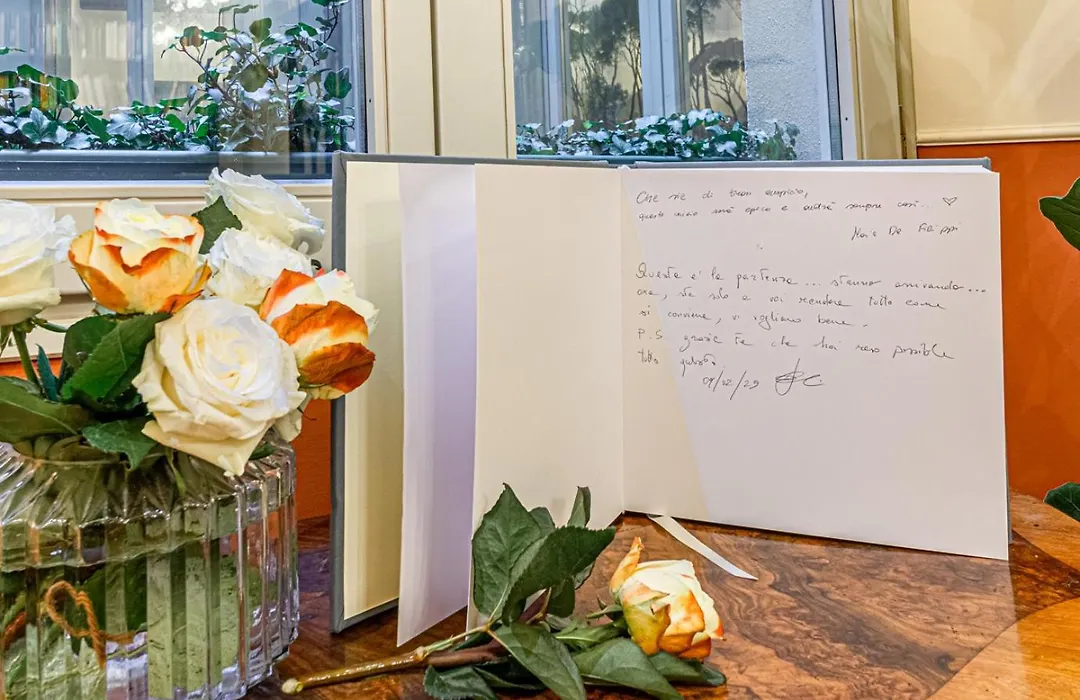 Che sia di buon auspicio,
questo vino sarà epico e andrà sempre così... ♡
Maria De Filippi
Questa è la partenza ... stanno arrivando...
ora, sta solo a voi rendere tutto come
si conviene, vi vogliamo bene.
P.S. grazie te che hai reso possibile
tutto questo.
09/12/23